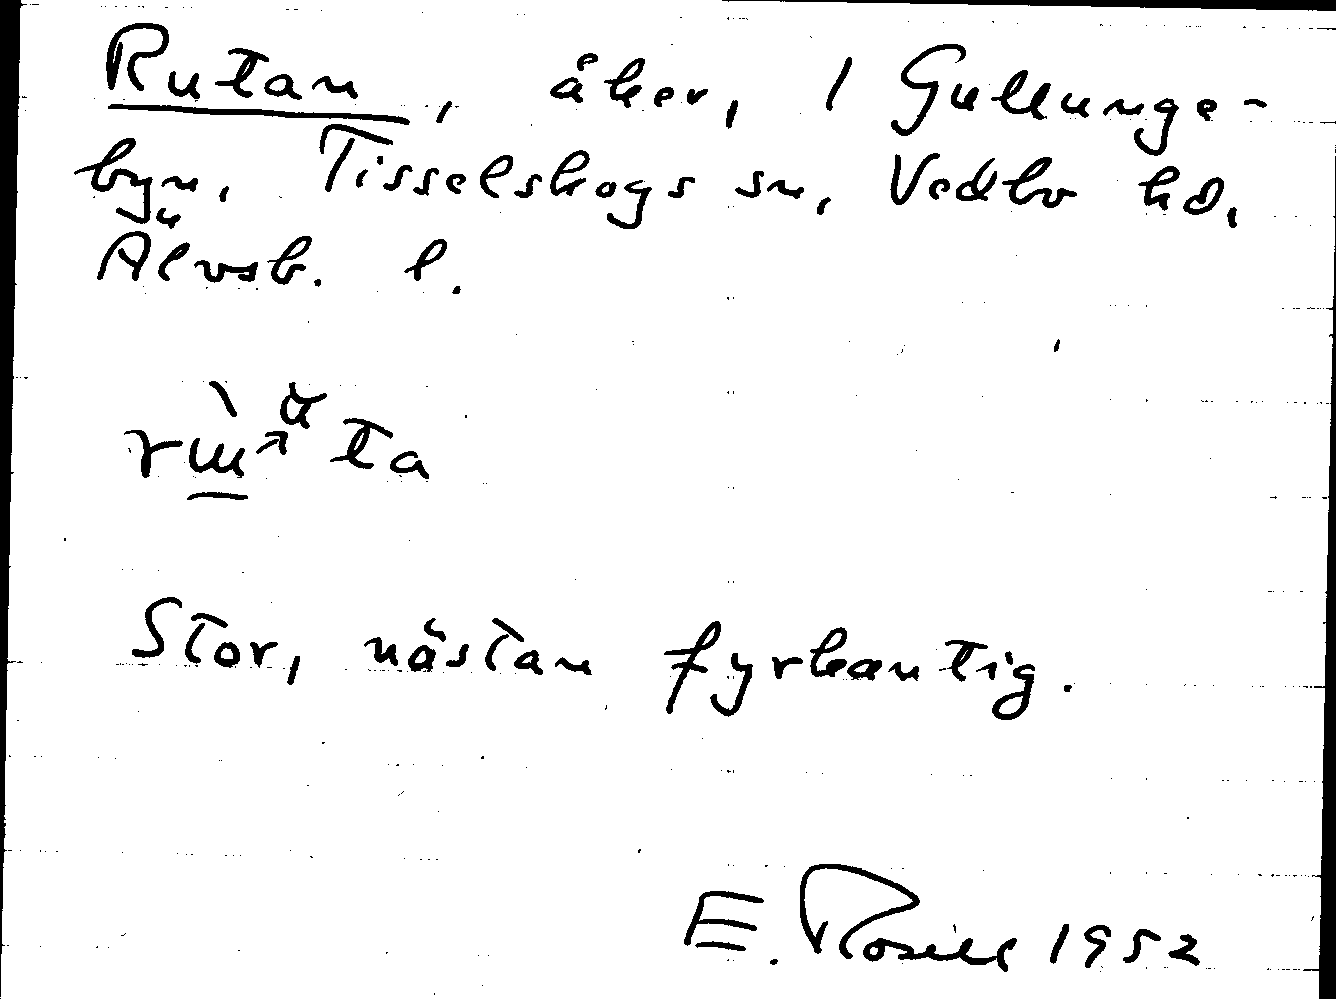 Rutan, åker, 1 Gullunge-
byn, Tisselskogs sn, Vedbo hd,
Älvsb. l.
Stor, nästan fyrkantig.
E. Rosell 1952